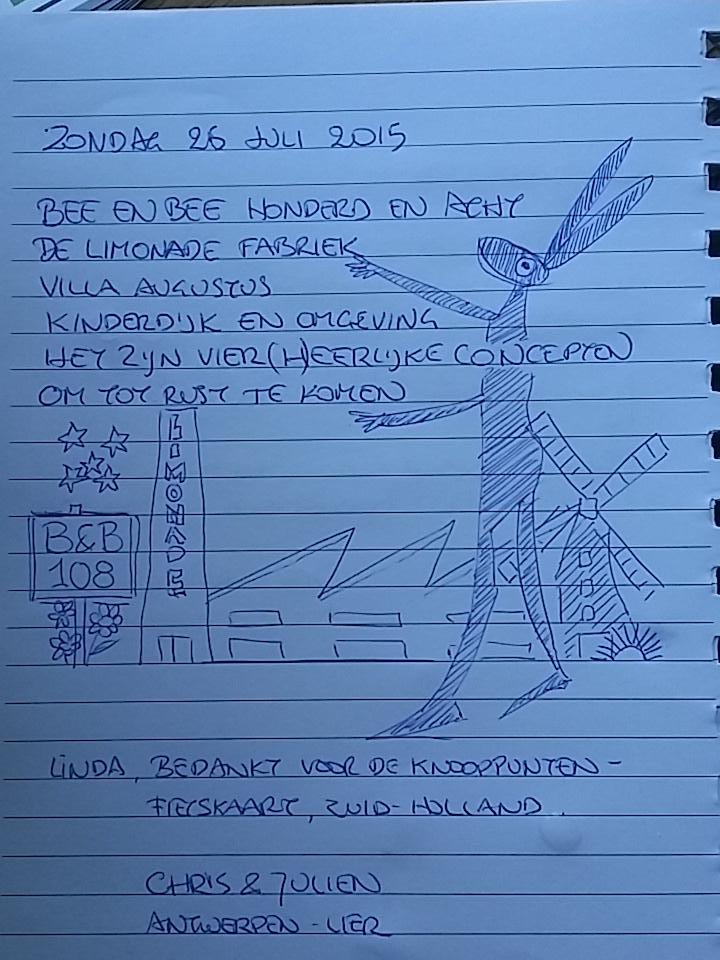 ZONDAG 26 JULI 2015
BEE EN BEE HONDERD EN ACHT
DE LIMONADE FABRIEK
VILLA AUGUSTUS
KINDERDIJK EN OMGEVING
HET ZIJN VIER (H)EERLIJKE CONCEPTEN
OM TOT RUST TE KOMEN
LIMONADE
B&B
108
LINDA, BEDANKT VOOR DE KNOOPPUNTEN-
FIETSKAART, ZUID-HOLLAND.
CHRIS & JULIEN
ANTWERPEN - LIER